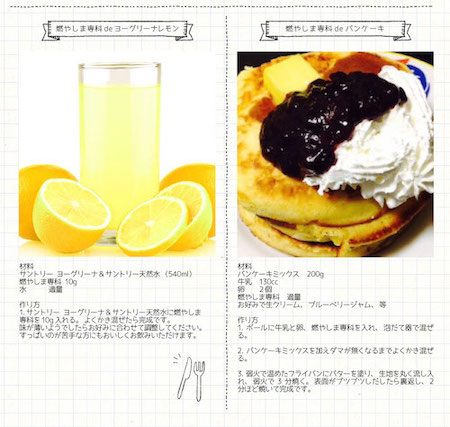 燃やしま専科 de ヨーグリーナレモン
材料
サントリー ヨーグリーナ＆サントリー天然水（540ml）
燃やしま専科 10g
水　　適量
作り方
1. サントリー ヨーグリーナ＆サントリー天然水に燃やしま
専科を10g 入れる。よくかき混ぜたら完成です。
味が薄いようでしたらお好みに合わせて調整してください。
すっぱいのが苦手な方にもおいしくお飲みいただけます。
燃やしま専科 de パンケーキ
材料
パンケーキミックス　200g
牛乳　130cc
卵　　２個
燃やしま専科　適量
お好みで生クリーム、ブルーベリージャム、等
作り方
1. ボールに牛乳と卵、燃やしま専科を入れ、泡だて器で混ぜ
る。
2. パンケーキミックスを加えダマが無くなるまでよくかき混ぜ
る。
3. 弱火で温めたフライパンにバターを塗り、生地を丸く流し入
れ、弱火で 3 分焼く。表面がプツプツしだしたら裏返し、2
分ほど焼いて完成です。